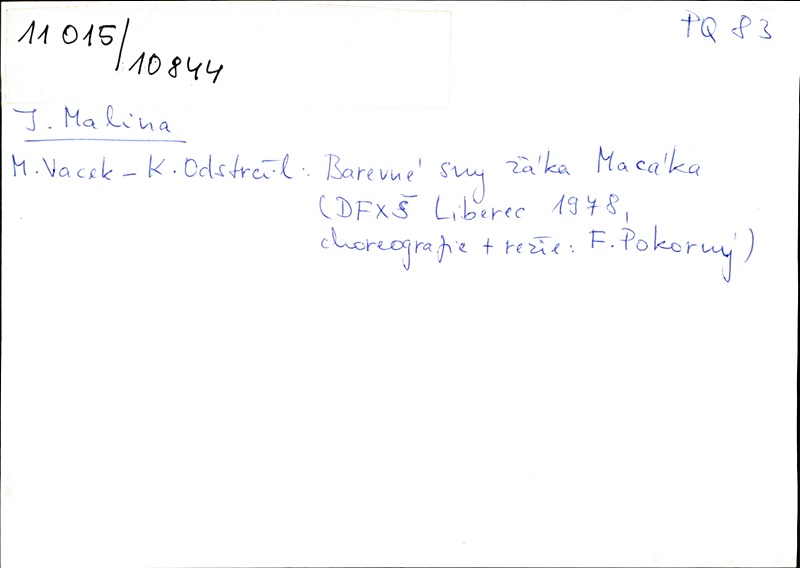 11 015/10844
PQ 83
J. Malina
M. Vacek – K. Odstrčil: Barevné sny žáka Macáka
(DFXŠ Liberec 1978,
choreografie + režie: F. Pokorný)